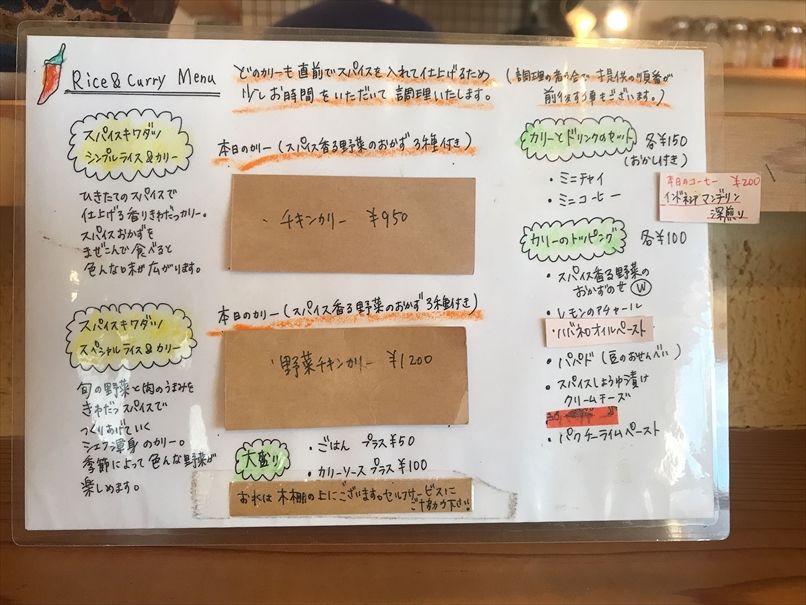 Rice & Curry Menu
どのカリーも直前でスパイスを入れて仕上げるため
少しお時間をいただいて調理いたします。
(調理の都合で提供の順番が
前後する事もございます。)
スパイスキワダツ
シンプルライス&カリー
ひきたてのスパイスで
仕上げる香りきわだつカリー。
スパイスおかずを
まぜこんで食べると
色んな味が広がります。
本日のカリー(スパイス香る野菜のおかず3種付き)
・チキンカリー ¥950
スパイスキワダツ
スペシャルライス&カリー
旬の野菜と肉のうまみを
きわだつスパイスで
つくりあげていく
シェフ渾身のカリー。
季節によって色んな野菜が
楽しめます。
本日のカリー(スパイス香る野菜のおかず3種付き)
・野菜チキンカリー ¥1200
大盛り
・ごはん プラス¥50
・カリーソース プラス¥100
お水は木棚の上にございます。セルフサービスに
ご協力下さい!
カリーとドリンクのセット 各¥150
(おかし付き)
・ミニチャイ
・ミニコーヒー
本日のコーヒー ¥200
インドネシア マンデリン
深煎り
カリーのトッピング 各¥100
・スパイス香る野菜の
おかずのせ W
・レモンのアチャール
・ハバネロオイルペースト
・パパド(豆のおせんべい)
・スパイスしょうゆ漬け
クリームチーズ
・パクチーライムペースト